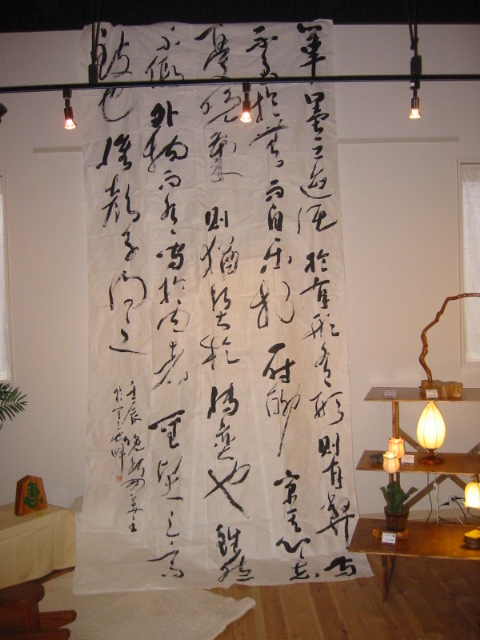 筆墨之迹託於有形有形則有弊苟
不至於無而自樂於一時聊寓其心忘
憂晚歲則猶賢於博弈也雖然
不假外物而有守於內者聖賢之高
致也惟顏子得之
壬辰